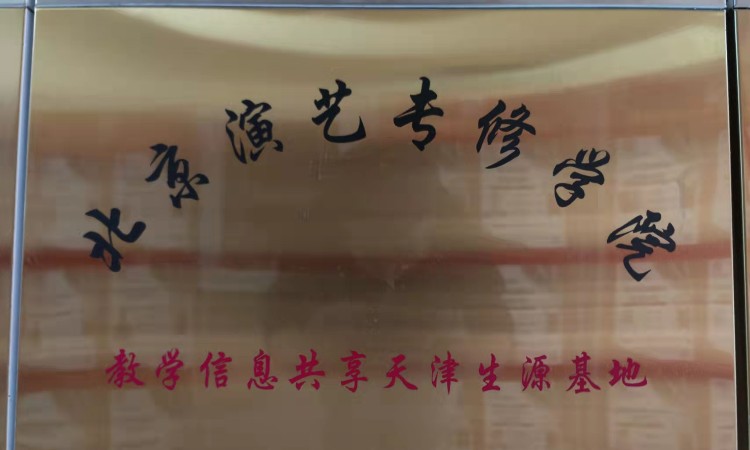 北京演艺专修学院
教学信息共享天津生源基地